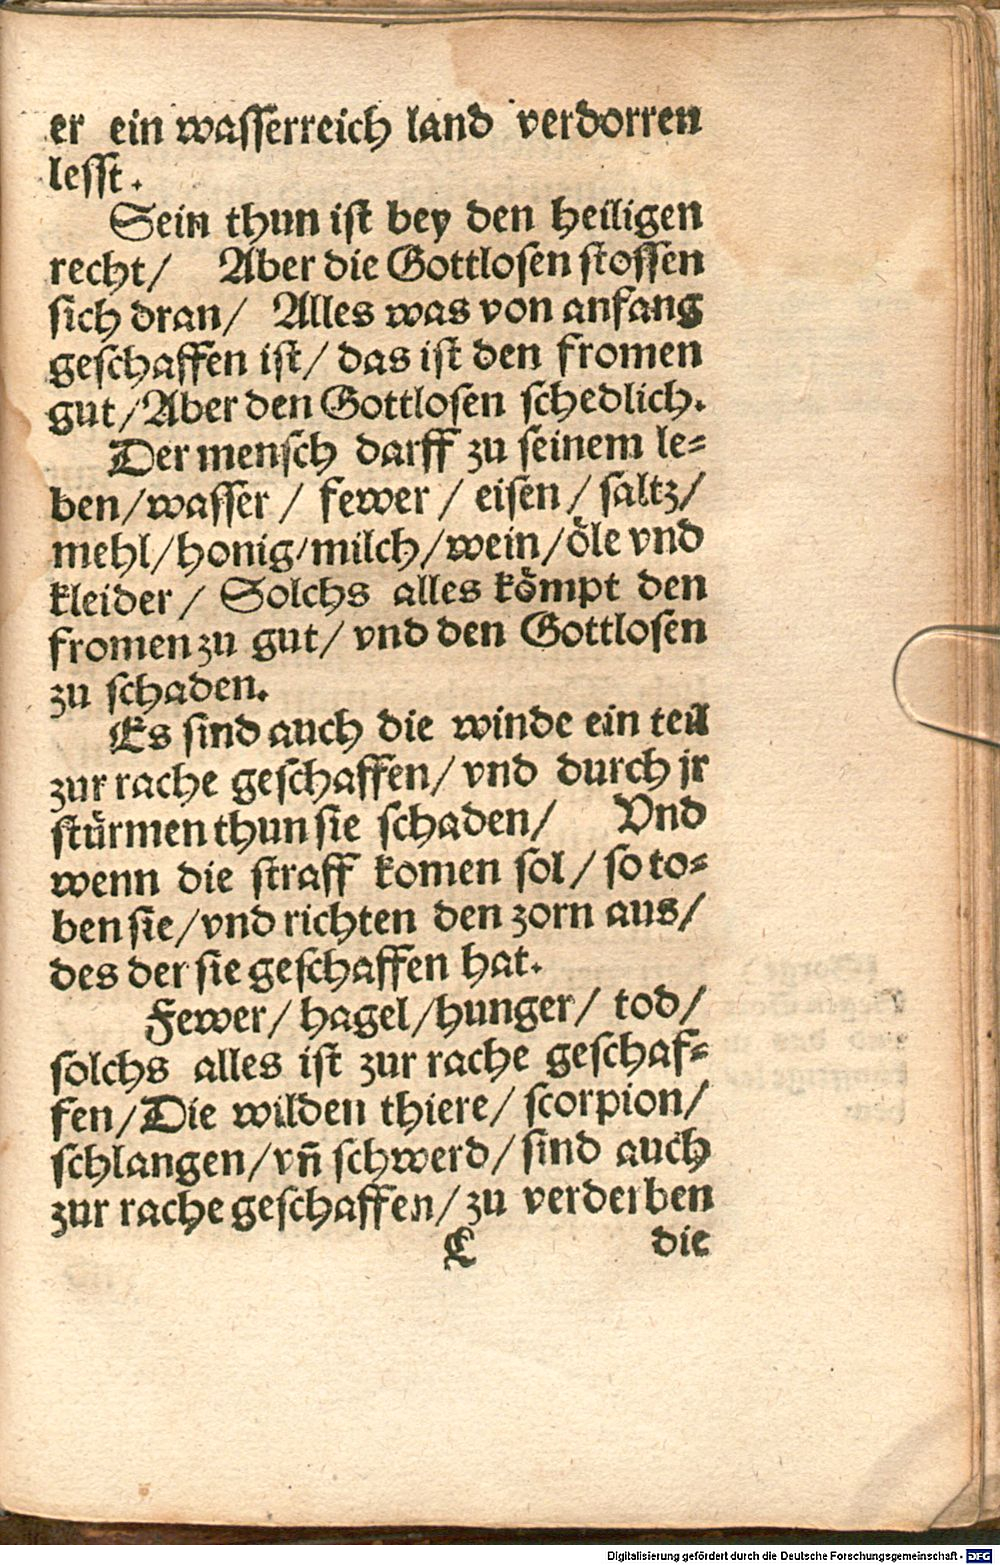 er ein wasserreich land verdorren
lesst.
Sein thun ist bey den heiligen
recht/ Aber die Gottlosen stossen
sich dran/ Alles was von anfang
geschaffen ist/ das ist den fromen
gut/Aber den Gottlosen schedlich.
Der mensch darff zu seinem le=
ben/wasser / fewer / eisen / saltz/
mehl/honig/milch/wein/öle vnd
kleider/ Solchs alles kömpt den
fromen zu gut/ vnd den Gottlosen
zu schaden.
Es sind auch die winde ein teil
zur rache geschaffen/ vnd durch jr
stürmen thun sie schaden/ Vnd
wenn die straff komen sol/ so to=
ben sie/vnd richten den zorn aus/
des der sie geschaffen hat.
Fewer/ hagel/hunger/ tod/
solchs alles ist zur rache geschaf=
fen/Die wilden thiere/ scorpion/
schlangen/vñ schwerd/ sind auch
zur rache geschaffen/ zu verderben
die
Digitalisierung gefördert durch die Deutsche Forschungsgemeinschaft - DFG